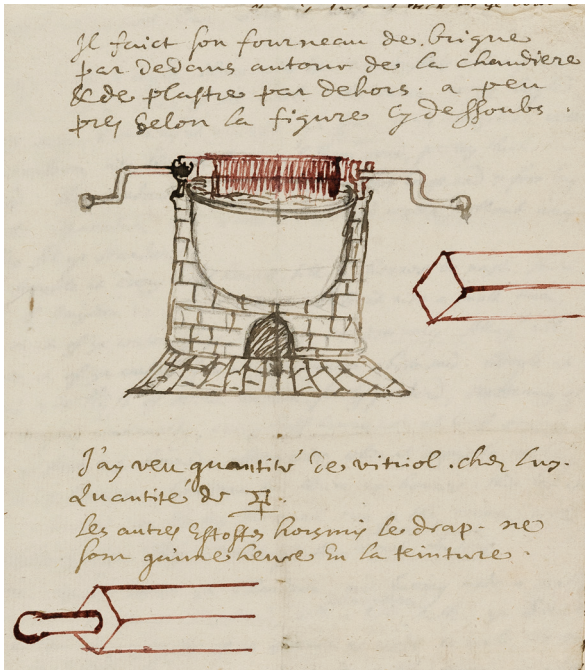 Il faict son fourneau de brique
par dedans autour de la chaudiere
& de plastre par dehors. a peu
pres selon la figure cy dessoubs.
J'ay veu quantité de vitriol. chez luy.
Quantité de
Les autres Estoffes horsmis le drap. ne
sont qu'une heure En la teinture.